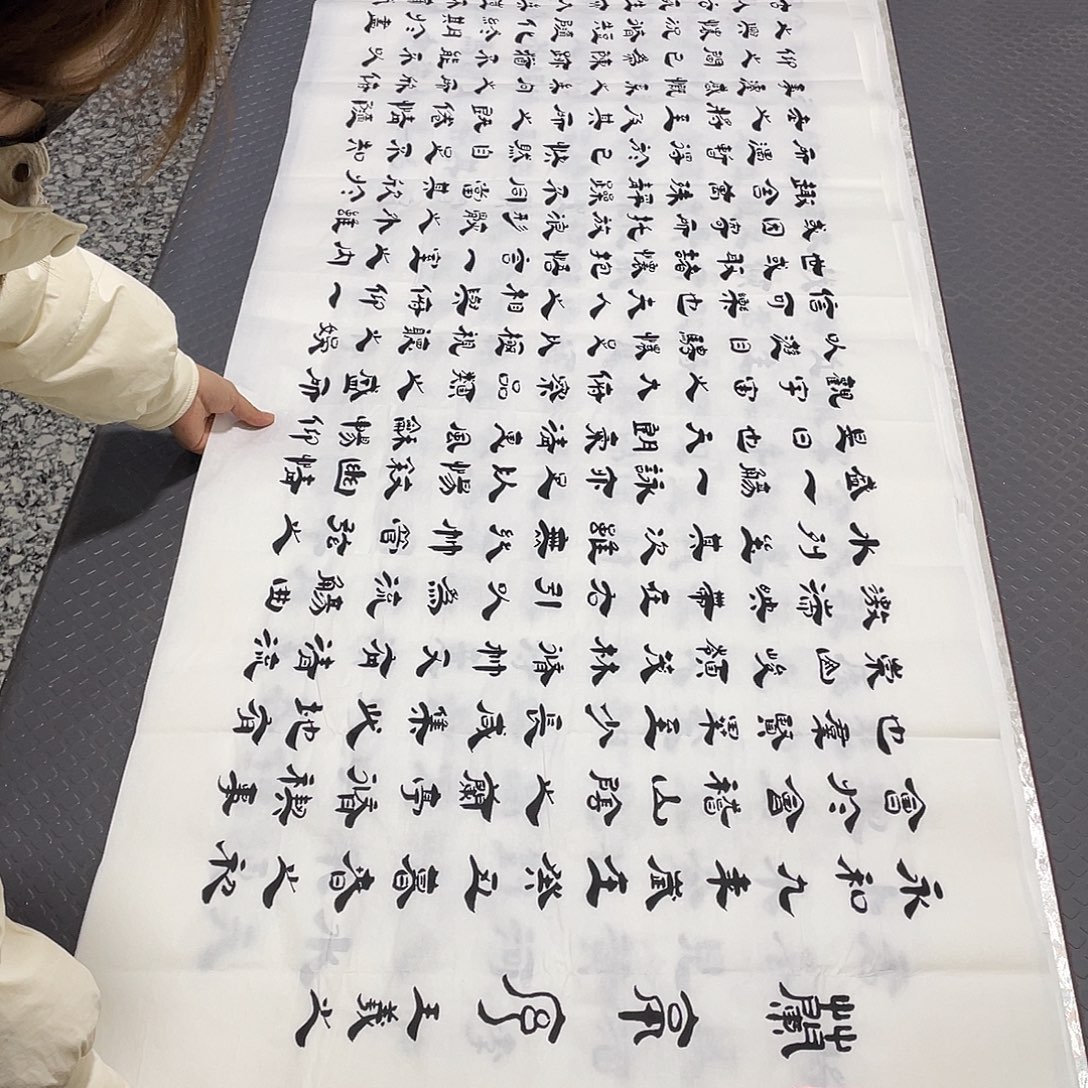 蘭亭序 王羲之
永和九年歲在癸丑暮春之初
會於會稽山陰之蘭亭脩禊事
也群賢畢至少長咸集此地有
崇山峻領茂林脩竹又有清流
激湍映帶左右引以為流觴曲
水列坐其次雖無絲竹管弦之
盛一觴一詠亦足以暢敘幽情
是日也天朗氣清惠風和暢仰
觀宇宙之大俯察品類之盛所
以遊目騁懷足以極視聽之娛
信可樂也夫人之相與俯仰一
世或取諸懷抱悟言一室之內
或因寄所托放浪形骸之外雖
趣舍萬殊靜躁不同當其欣於
所遇暫得於己快然自足不知
老之將至及其所之既倦情隨
事遷感慨係之矣向之所欣俛
仰之間已為陳跡猶不能不以
之興懷況脩短隨化終期於盡